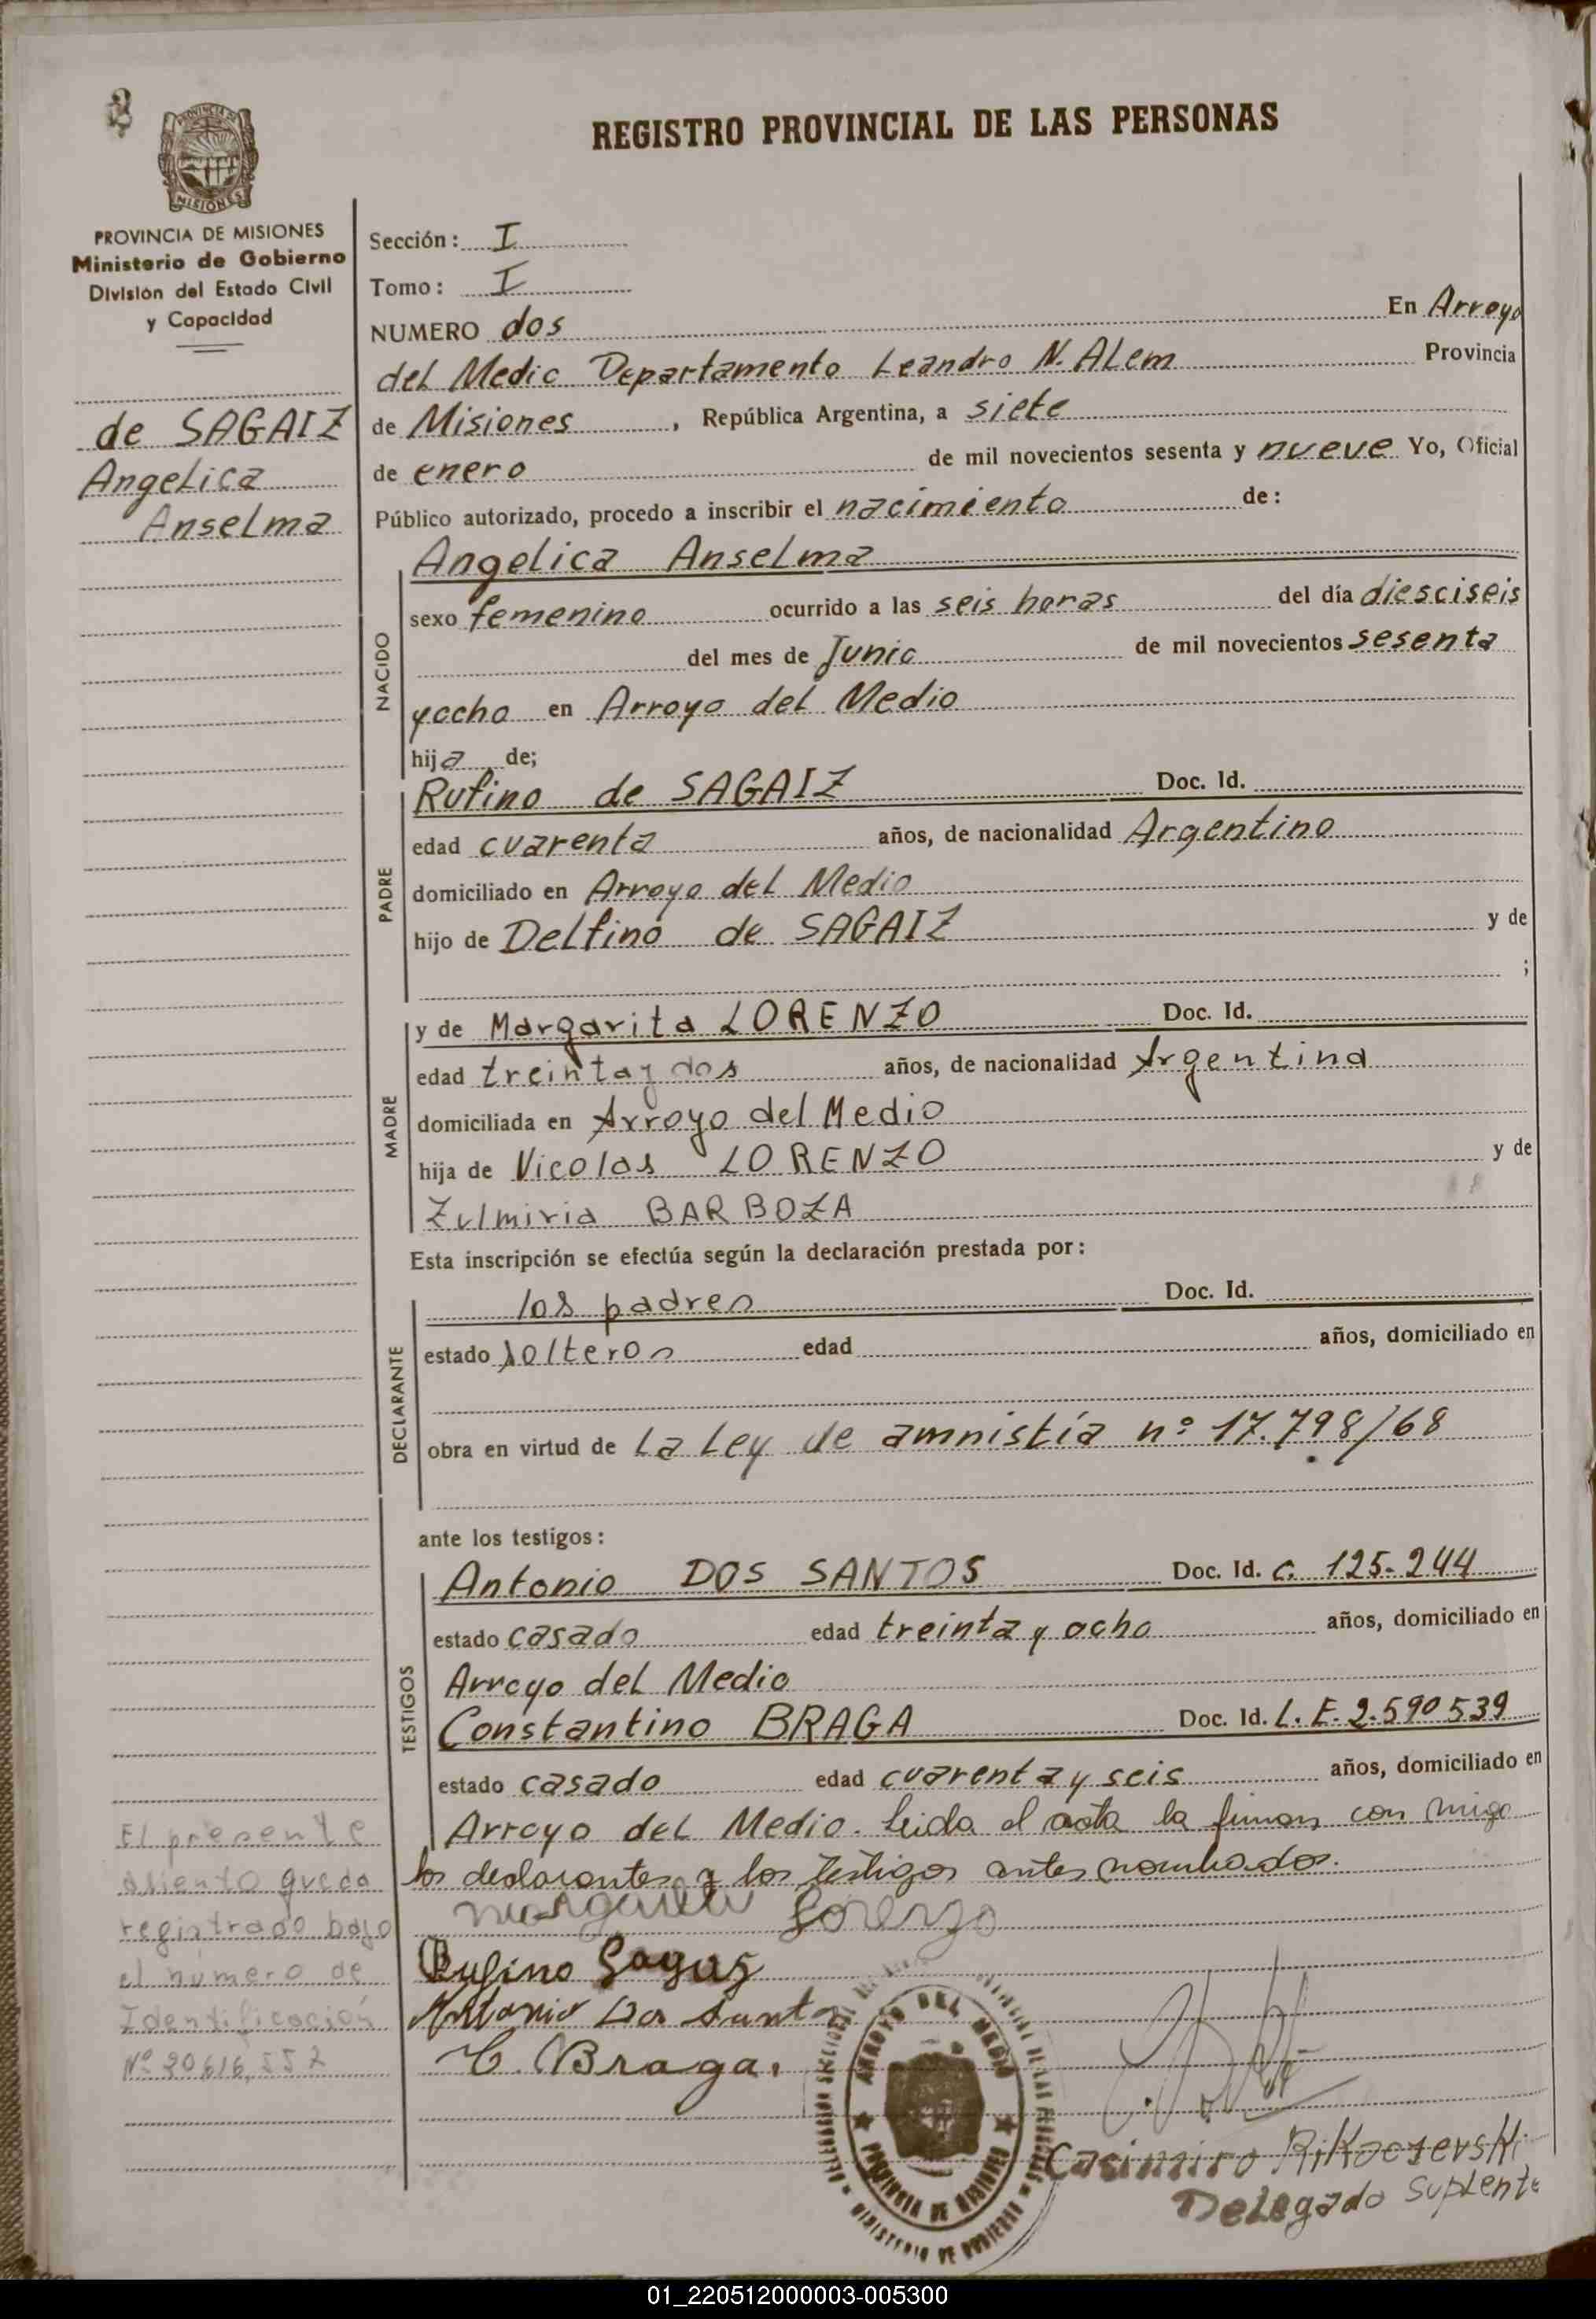 REGISTRO PROVINCIAL DE LAS PERSONAS
PROVINCIA DE
MISIONES
PROVINCIA DE MISIONES
Ministerio de Gobierno
División del Estado Civil
y Capacidad
de SAGAIZ
Angelica
Anselma
Sección: I
Tomo: I
NUMERO dos En Arroyo
del Medio Departamento Leandro N. ALem Provincia
de Misiones, República Argentina, a siete
de enero de mil novecientos sesenta y nueve Yo, Oficial
Público autorizado, procedo a inscribir el nacimiento de:
NACIDO
Angelica Anselma
sexo femenino ocurrido a las seis horas del día diesciseis
del mes de Junio de mil novecientos sesenta
yocho en Arroyo del Medio
hija de;
PADRE
Rufino de SAGAIZ Doc. Id.
edad cuarenta años, de nacionalidad Argentino
domiciliado en Arroyo del Medio
hijo de Delfino de SAGAIZ y de
;
MADRE
y de Margarita LORENZO Doc. Id.
edad treinta y dos años, de nacionalidad Argentina
domiciliada en Arroyo del Medio
hija de Nicolas LORENZO y de
Zulmiria BARBOZA
Esta inscripción se efectúa según la declaración prestada por:
DECLARANTE
los padres Doc. Id.
estado solteros edad años, domiciliado en
obra en virtud de La Ley de amnistía nº 17.798/68
ante los testigos:
TESTIGOS
Antonio DOS SANTOS Doc. Id. C. 125.244
estado casado edad treinta y ocho años, domiciliado en
Arroyo del Medio
Constantino BRAGA Doc. Id. L. E. 2.590539
estado casado edad cuarenta y seis años, domiciliado en
Arroyo del Medio. Leida el acta la firman con migo
los declarantes y los testigos antes nombrados.
Margarita Lorenzo
Rufino Sagaz
Antonio Dos Santo
C. Braga.
El presente
asiento queda
registrado bajo
el número de
Identificación
Nº 20.616.557
ARROYO DEL MEDIO
PROVINCIA DE MISIONES
MINISTERIO DE GOBIERNO
Casimiro
Delegado Suplente
01_220512000003-005300